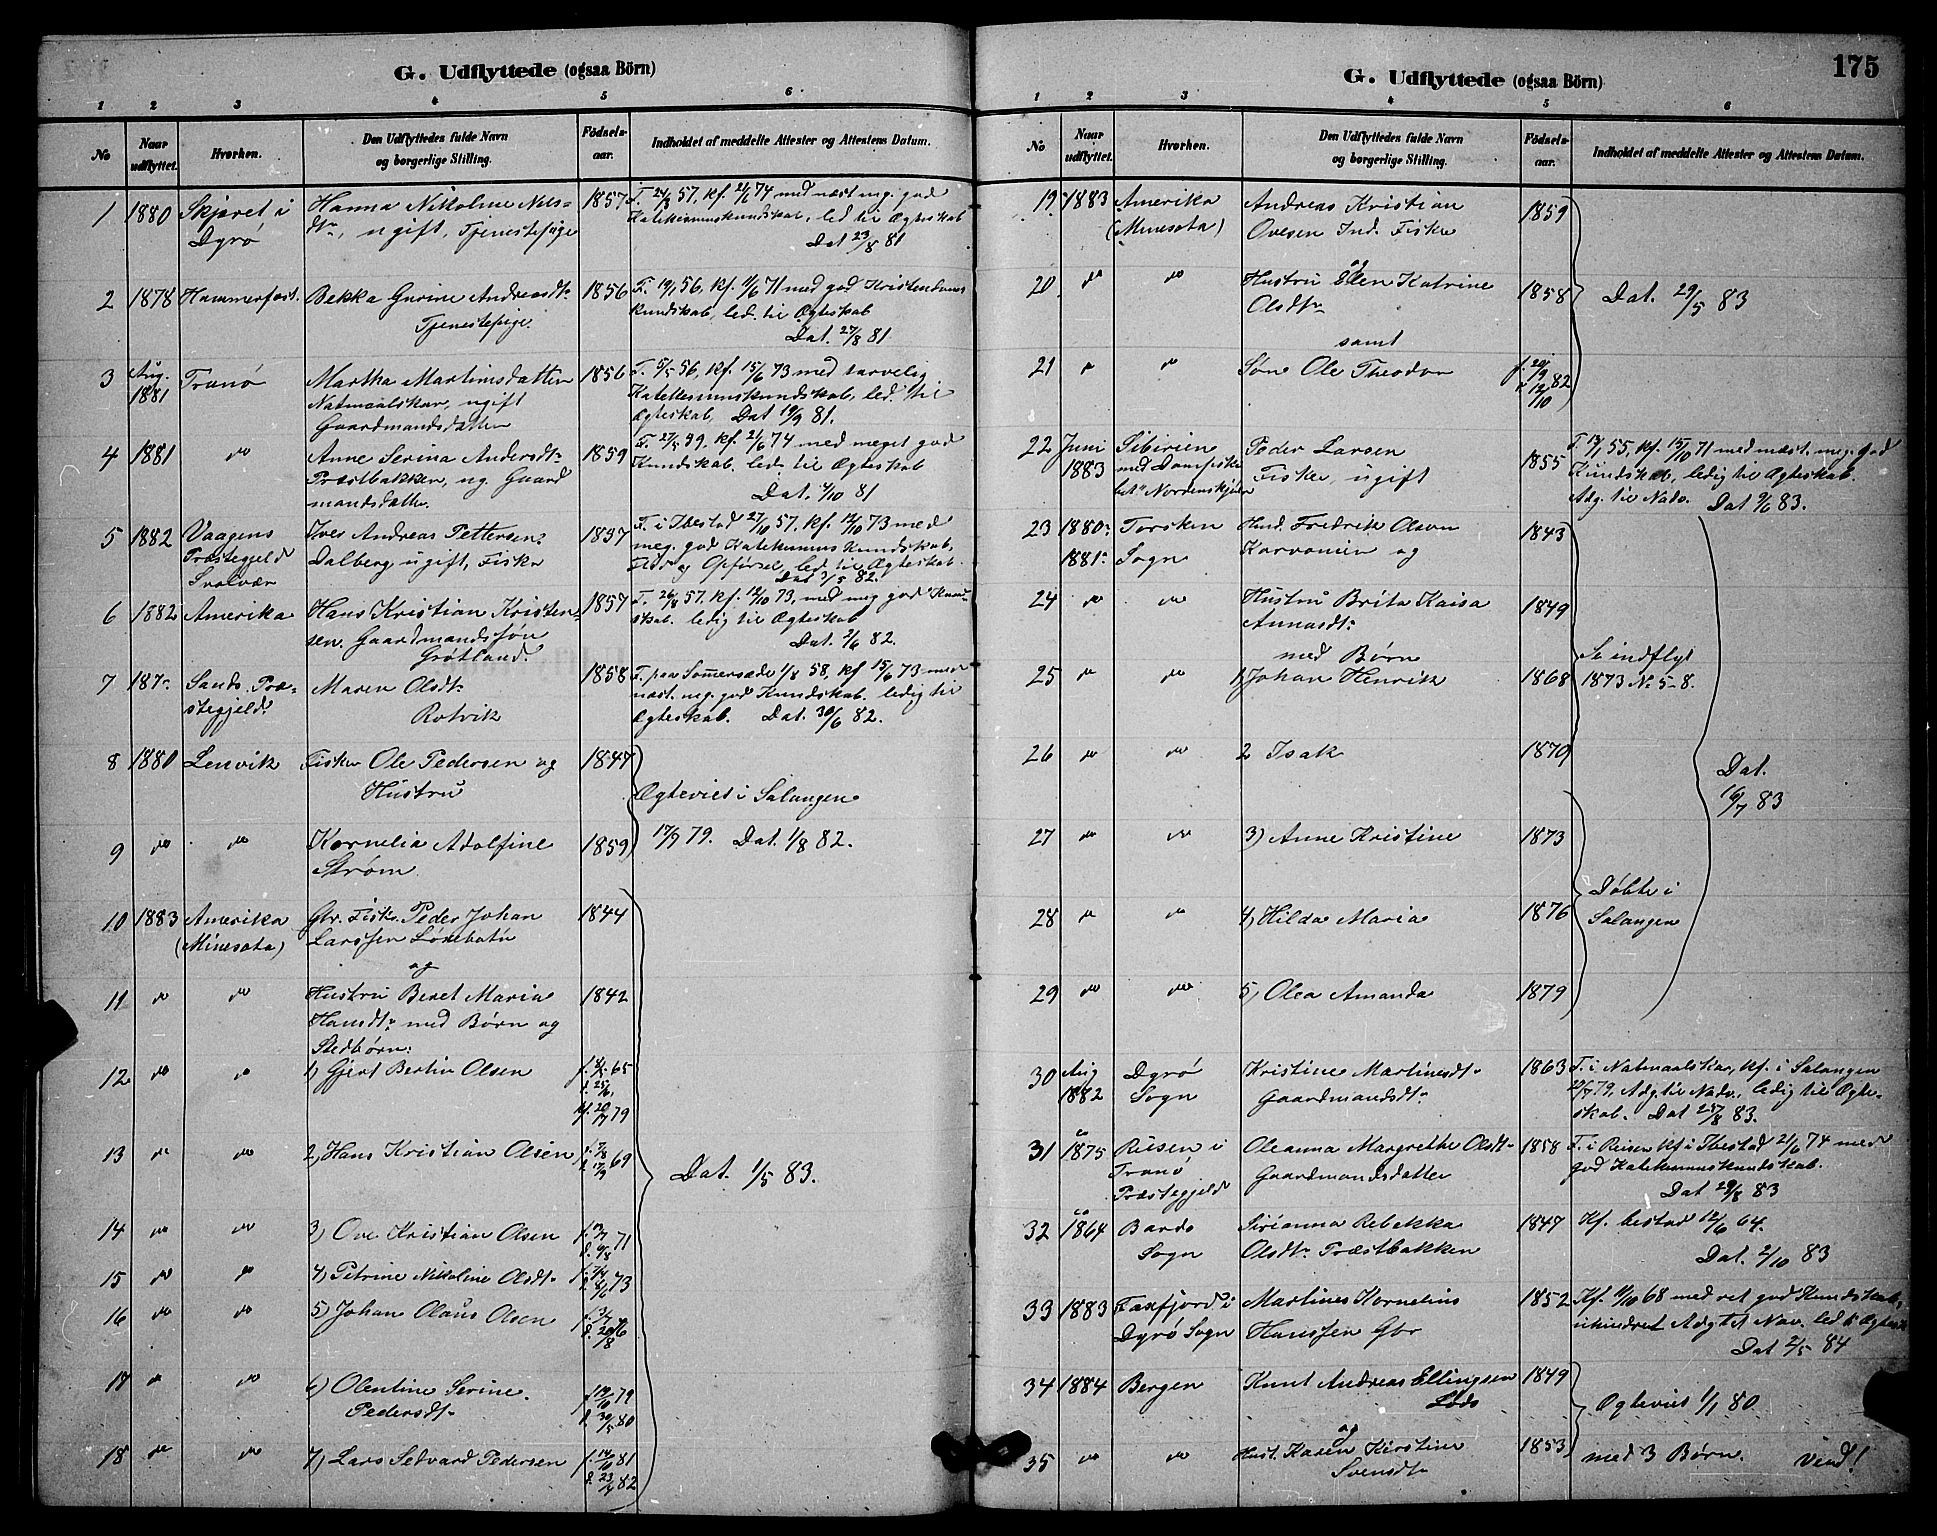 G. Udflyttede (ogsaa Börn)
1 2 3 4 5 6
No
Naar udflyttet.
Hvorhen.
Den Udflyttedes fulde Navn og borgerlige Stilling.
Födsels-aar.
Indholdet af meddelte Attester og Attestens Datum.
1 1880 Skjæret i Hanna Nikoline Nils- 1857 F. 24/8 57, kf. 21/6 74 med næst meg. god
Dyrö dtr, ugift, Tjenestepige Katekismuskundskab, led. til Ægteskab
Dat 23/8 81
2 1878 Hammerfest. Bekka Gurine Andreasdtr 1856 F. 19/1 56, kf. 11/6 71 med god Kristendoms
Tjenestepige. kundskab, led. til Ægteskab
Dat. 27/8 81
3 Aug. 1881 Tranö Martha Martinsdatter 1856 F. 5/5 56, kf. 15/6 73 med tarvelig
Natmaalskar, ugift Katekismuskundskab, led. til
Gaardmandsdatter Ægteskab, Dat 19/9 81.
4 1881 " Anne Serina Andersdtr 1859 F. 27/5 59, kf. 21/6 74 med meget god
Præstbakken, ug. Gaard Kundskab. led. til Ægteskab
mandsdatter Dat. 4/10 81
5 1882 Vaagens Iver Andreas Pettersen 1857 F. i Ibestad 27/10 57, kf. 12/10 73 med
Præstegjeld Dalberg, ugift, Fisker meg. god Katekismus Kundskab,
Svolvær Flid og Opförsel, led. til Ægteskab.
Dat 3/5 82.
6 1882 Amerika Hans Kristian Kristen- 1857 F. 26/8 57. kf. 12/10 73, med meg god Kund-
sen. Gaardmandssön skab. ledig til Ægteskab
Grötland. Dat. 2/6 82.
7 187- Sands Præ- Maren Olsdtr 1858 F. paa Sommersæde 1/8 58, kf 15/6 73 med
stegjeld. Rotvik næst. meg. god Kundskab. ledig til
Ægteskab. Dat. 30/6 82.
8 1880 Lenvik Fisker Ole Pedersen og 1847
Hustru Ægteviet i Salangen
9 " " Kornelia Adolfine 1859 17/9 79. Dat. 1/8 82.
Ström
10 1883 Amerika Gbr. Fisker Peder Johan 1844
(Minesota) Larssen Lönebotn
og
11 " " Hustru Beret Maria 1842
Hansdtr med Börn og
Stedbörn:
12 " " 1) Gjert Bertin Olsen f. 65
d. 25/6
kf. 20/7 79
13 " " 2, Hans Kristian Olsen f. 7/8 69
d. 17/9
Dat. 1/5 83.
14 " " 3) Ove Kristian Olsen 71
15 " " 4) Petrine Nikoline Olsdtr 73
16 " " 5) Johan Olaus Olsen
17 " " 6) Olentine Serine f. 19/10 79
Pedersdtr d. 30/5 80
18 " " 7) Lars Sedvard Pedersen 81
d. 23/4 82
G. Udflyttede (ogsaa Börn)
175
1 2 3 4 5 6
No
Naar udflyttet.
Hvorhen.
Den Udflyttedes fulde Navn og borgerlige Stilling.
Födsels-aar.
Indholdet af meddelte Attester og Attestens Datum.
19 1883 Amerika Andreas Kristian 1859
(Minesota) Ovesen Ind. Fisker
og
20 " " Hustru Ellen Katrine 1858 Dat. 29/5 83
Olsdtr
samt
21 " " Sön Ole Theodor f. 20/9 82
d. 12/10
22 Juni 1883 Sibirien Peder Larsen 1855 F 13/1 55, kf. 15/10 71 med næst. meg. god
med Dampski- Fisker, ugift Kundskab, ledig til Ægteskab.
bet "Nordenskjöld Adg. til Nadv. Dat 9/6 83.
23 1880- Torsken Ind. Fredrik Olsen 1843
1881- Sogn Karvonien og
24 " " Hustru Brita Kaisa 1849
Annasdtr
med Börn Se indflyt
25 " " 1 Johan Henrik 1868 1873 No 5-8.
26 " " 2 Isak 1870
Dat. 16/7 83
27 " " 3) Anne Kristine 1873
28 " " 4, Hilda Maria 1876
Döbte i
Salangen
29 " " 5, Olea Amanda 1879
30 Aug 1882 Dyrö Kristine Martinesdtr 1863 F. i Natmaalskar, kf. i Salangen
Sogn Gaardmandsdtr 79, Adg. til Nadv., ledig til Ægte-
skab. Dat 25/8 83.
31 1875 Reisen i Oleanna Margrethe Olsdtr 1858 F. i Reisen kf i Ibestad 21/6 74 med
Tranö Gaardmandsdatter god Katekismuskundskab.
Præstegjeld Dat 29/8 83
32 1864 Bardo Sirianna Rebekka 1847 Kf. Ibestad 12/6 64.
Sogn Olsdtr Præstbakken Dat. 2/10 83
33 1883 Faxfjord i Martines Kornelius 1852 Kf. 11/10 68 med ret god Kundskab,
Dyrö Sogn Hanssen Gbr uhindret Adg til Nav. led ti Ægtesk
Dat 2/5 84
34 1884 Bergen Knut Andreas Ellingsen 1849
Lods Ægteviet 1/1 80
og
35 " " Hust. Karen Kirstine 1853 med 3 Börn. Vend!
Svensdtr